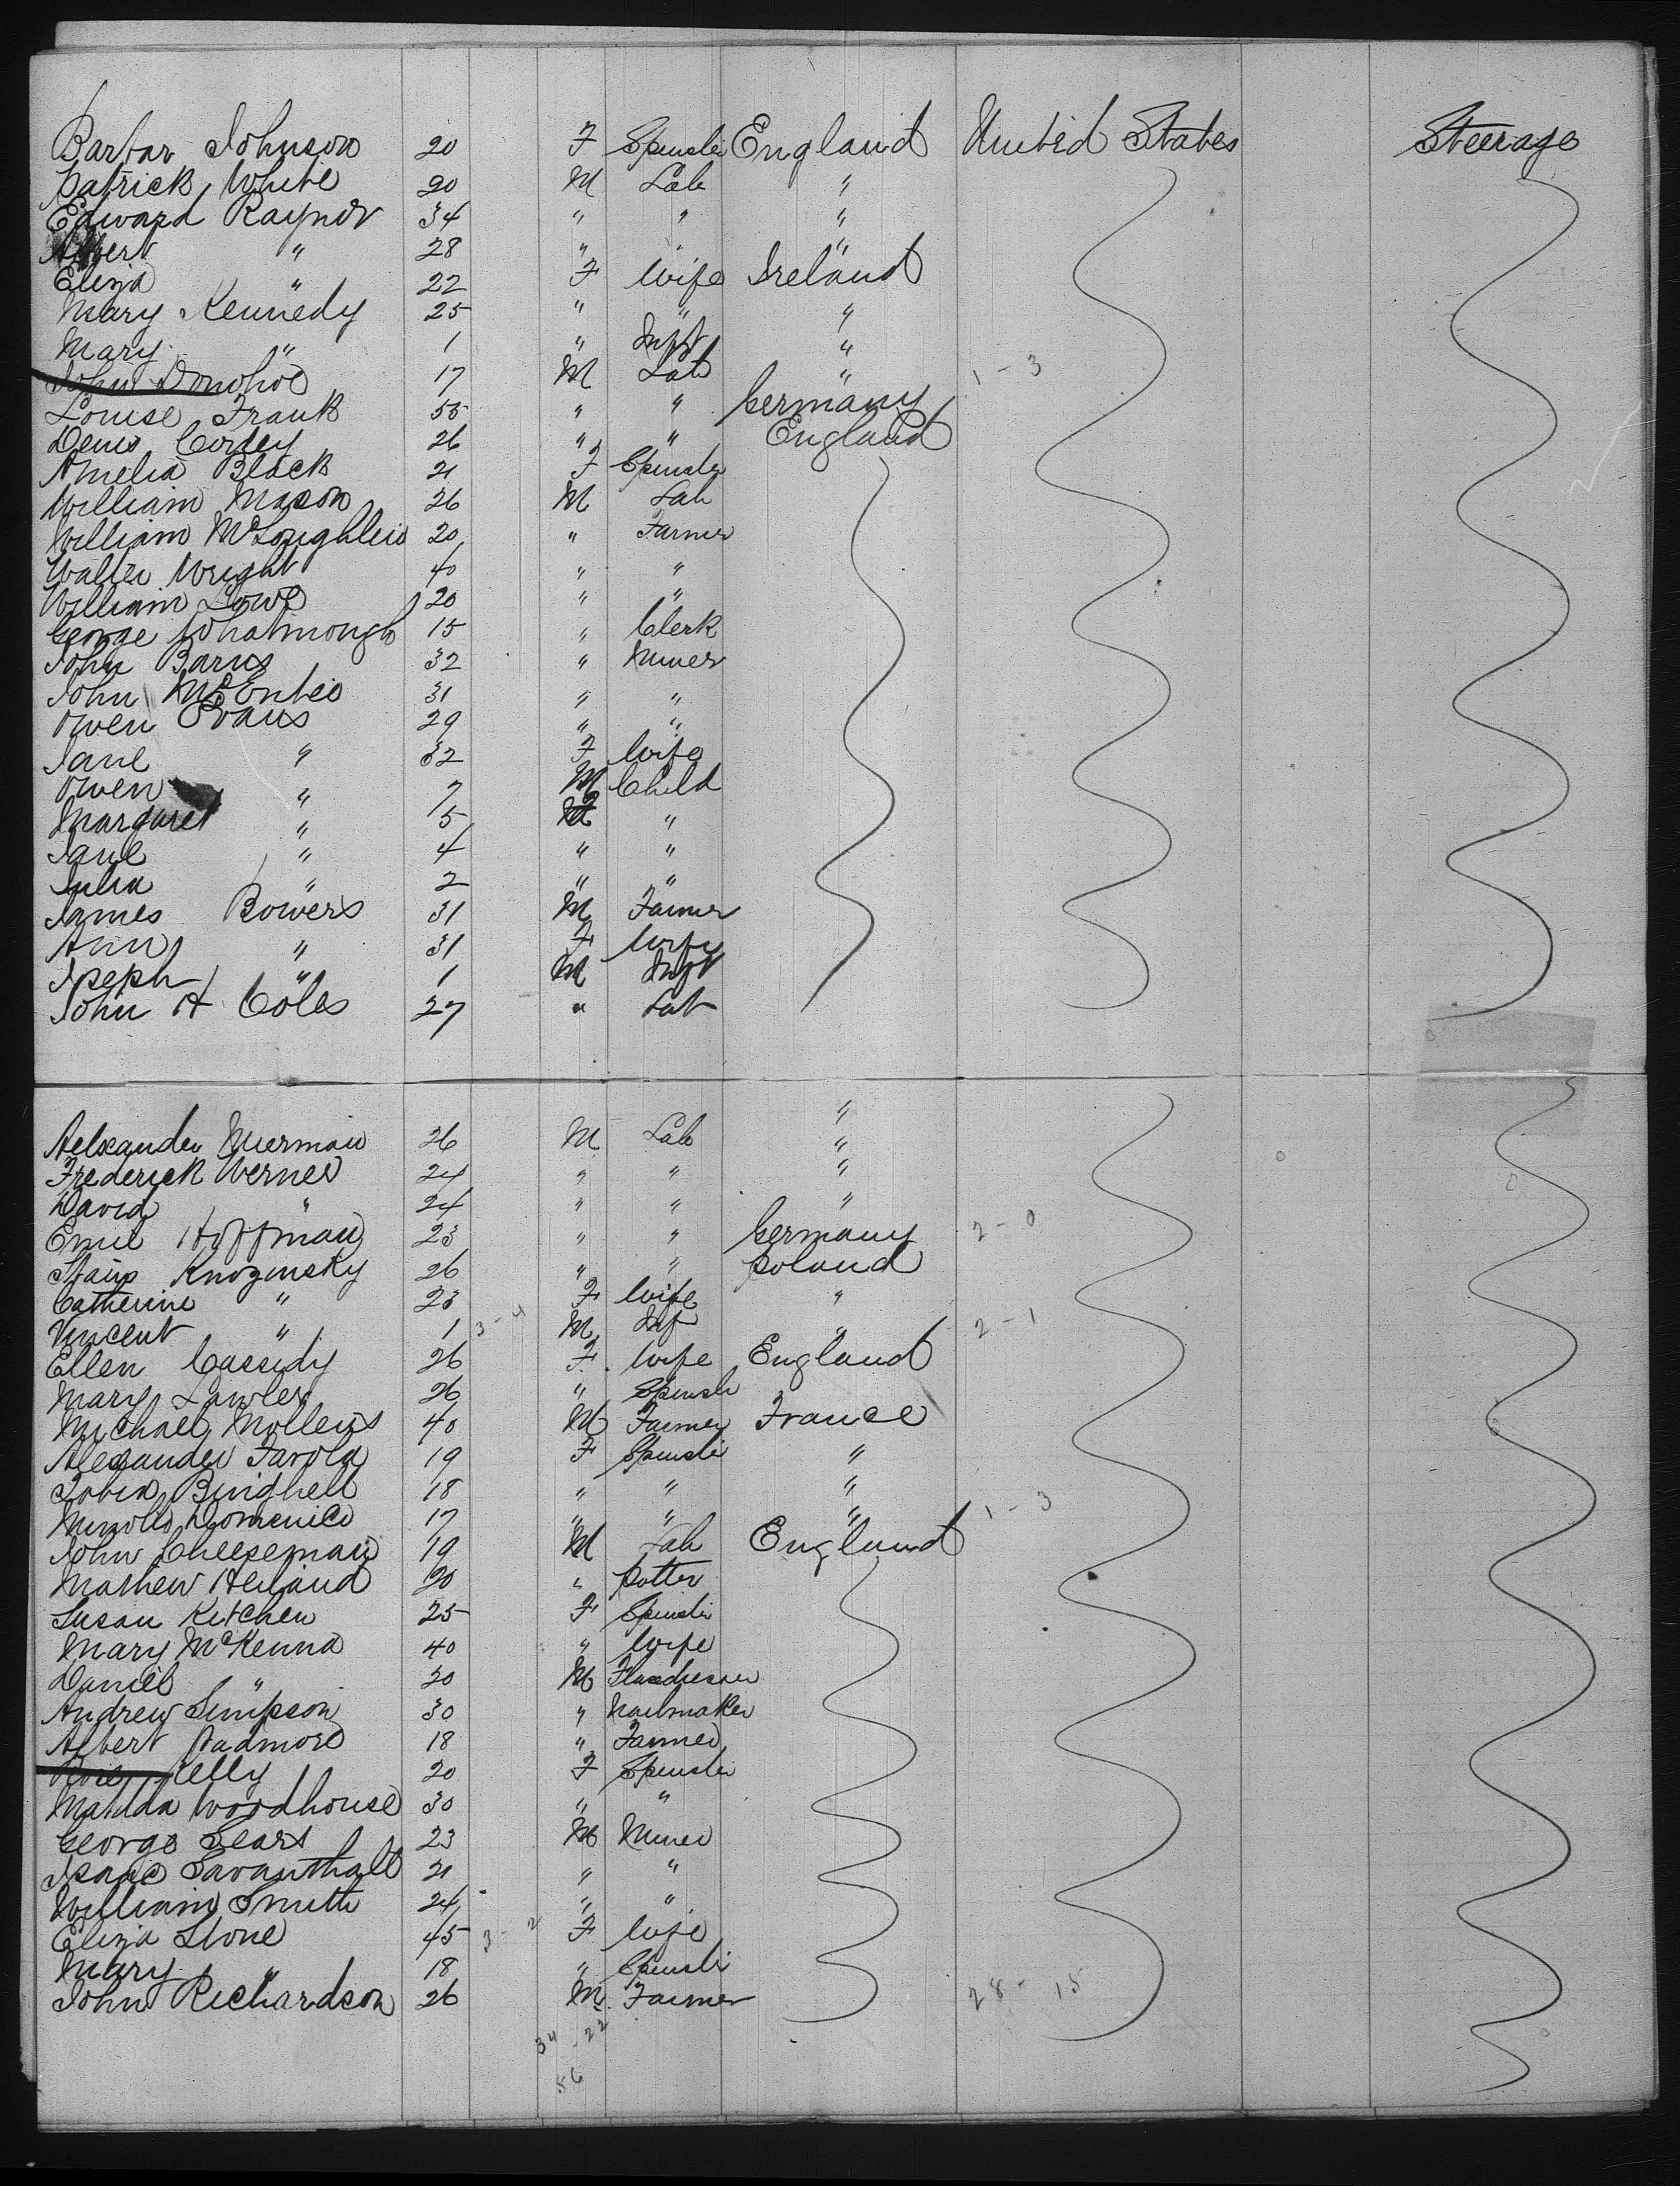 Barbar Johnson 20 F Spinster England United States Steerage
Patrick White 20 M Lab "
Edward Raynor 34 " " "
Albert " 28 " " "
Eliza " 22 F Wife Ireland
Mary Kennedy 25 " " "
Mary " 1 " Inft "
John Donohoe 17 M Lab " 1 - 3
Louise Frank 55 " " Germany
Denis Corley 26 " " England
Amelia Black 21 F Spinster
William Mason 26 M Lab
William McLoughlin 20 " Farmer
Walter Wright 40 " "
William Lowe 20 " "
George Whatmough 15 " Clerk
John Barns 32 " Miner
John McEntee 31 " "
Owen Evans 29 " "
Jane " 32 F Wife
Owen " 7 M Child
Margaret " 5 F "
Jane " 4 " "
Julia " 2 " "
James Bowers 31 M Farmer
Ann " 31 F Wife
Joseph " 1 M Inft
John H Coles 27 " Lab
"
Aelxander Muerman 26 M Lab "
Frederick Werner 24 " " "
David " 24 " " "
Emil Hoffman 23 " " Germany 2 - 0
Knozinsky 26 " " Poland
Catherine " 23 F Wife "
Vincent " 1 3 - 4 M Inf " 2 - 1
Ellen Cassidy 26 F Wife England
Mary Lawler 26 " Spinster
Michael Mollens 40 M Farmer France
Alexander Farola 19 F Spinster "
Binghell 18 " " "
Domenico 17 " " " 1 - 3
John Cheeseman 19 M Lab England
Mathew Heiland 20 " Potter
Susan Kitchen 25 F Spinster
Mary McKenna 40 " Wife
Daniel " 20 M Flaxdresser
Andrew Simpson 30 " Nailmaker
Albert Padmore 18 " Farmer
Rose Kelly 20 F Spinster
Matilda Woodhouse 30 " "
George Sears 23 M Miner
Isaac Savanthall 21 " "
William Smith 24 " "
Eliza Stone 45 3 - 2 F Wife
Mary " 18 " Spinster
John Richardson 26 M Farmer 28 - 15
34 - 22
56